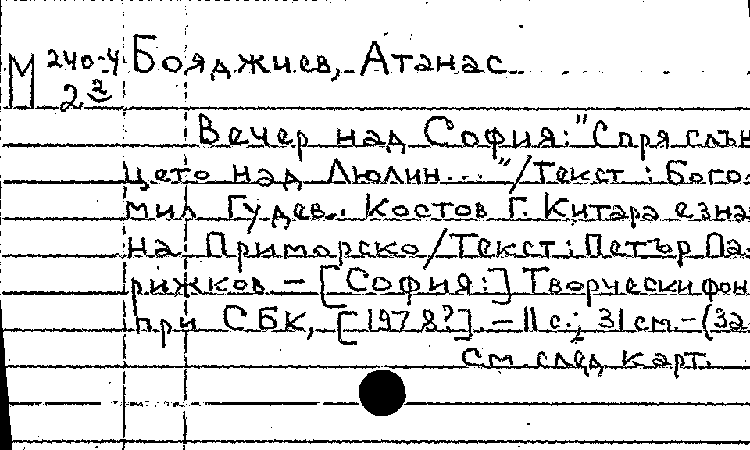 М 240-4 Бояджиев, Атанас
2 2
Вечер над София: "Спря слън
цето над Люлин..." / Текст : Бого-
мил Гудев.. Костов Г. Китара е зна
на Приморско / Текст : Петър Па-
рижков - [София:] Творчески фон
при СБК, [1978?]. - 11 с.; 31 см. - (За
См. след. карт.